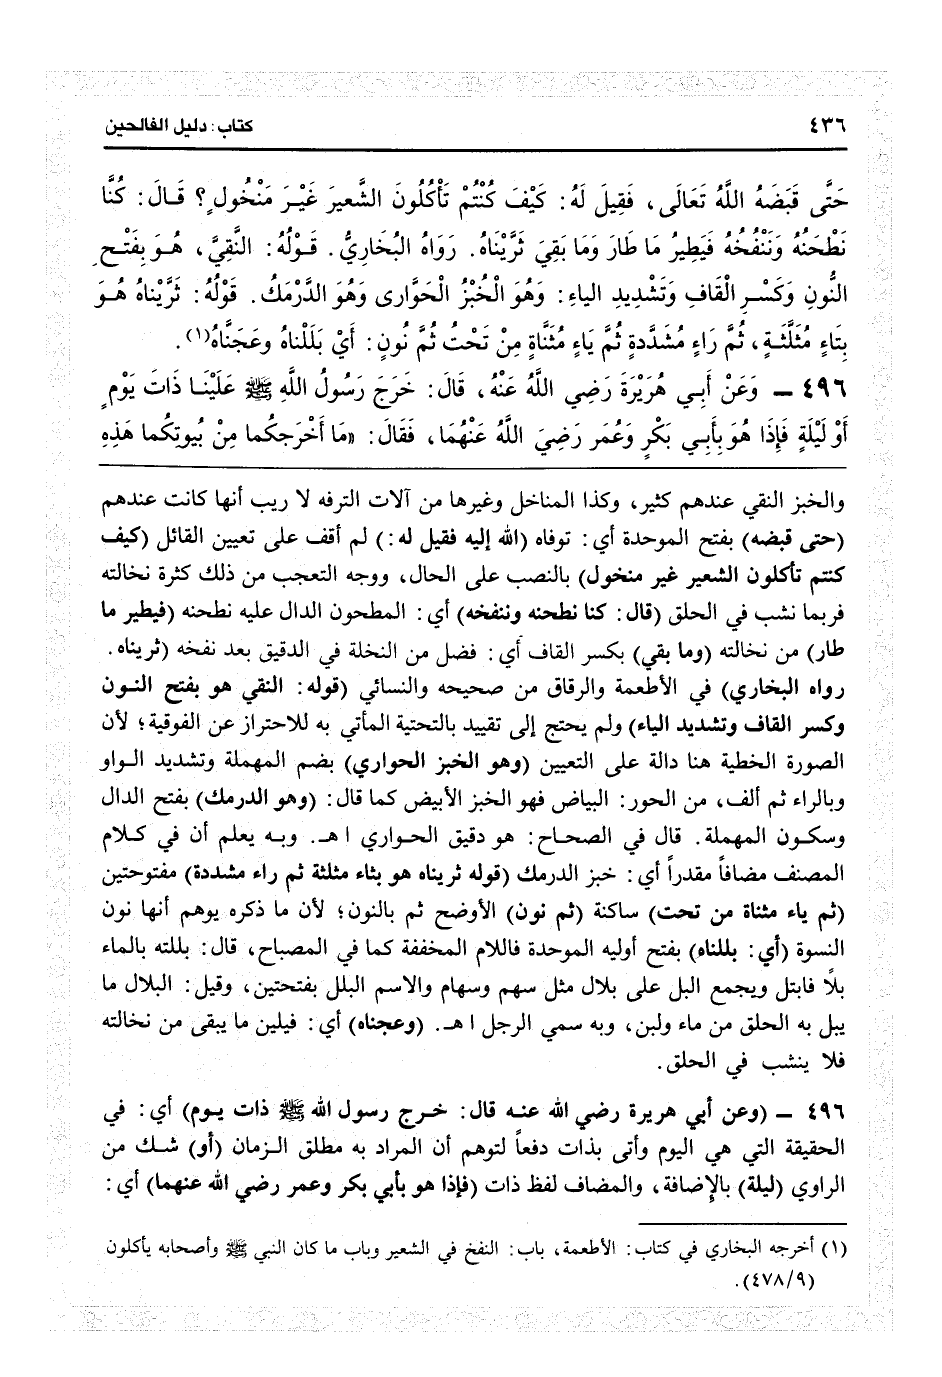 ٤٣٦ كتاب: دليل الفالحين
حَتَّى قَبَضَهُ اللَّهُ تَعَالَى، فَقِيلَ لَهُ: كَيْفَ كُنْتُمْ تَأْكُلُونَ الشَّعيرَ غَيْرَ مَنْخُولٍ؟ قَالَ: كُنَّا
نَطْحَنُهُ وَنَنْفُخُهُ فَيَطِيرُ مَا طَارَ وَمَا بَقِيَ ثَرَّيْنَاهُ. رَوَاهُ البُخَارِيُّ. قَوْلُهُ: النَّقِيَّ، هُوَ بِفَتْحِ
النُّونِ وَكَسْرِ الْقَافِ وَتَشْدِيدِ الياءِ: وَهُوَ الْخُبْزُ الْحَوَّارى وَهُوَ الدَّرْمَكُ. قَوْلُهُ: ثَرَّيْناهُ هُوَ
بِثَاءٍ مُثَلَّثَةٍ، ثُمَّ رَاءٍ مُشَدَّدةٍ ثُمَّ يَاءٍ مُثَنَّاةٍ مِنْ تَحْتُ ثُمَّ نُونٍ: أَيْ بَلَلْناهُ وعَجَنَّاهُ(١).
٤٩٦ ـ وَعَنْ أَبِي هُرَيْرَةَ رَضِي اللَّهُ عَنْهُ، قَالَ: خَرَجَ رَسُولُ اللَّهِ ﷺ عَلَيْنَا ذَاتَ يَوْمٍ
أَوْ لَيْلَةٍ فَإِذَا هُوَ بِأَبِي بَكْرٍ وَعُمَر رَضِيَ اللَّهُ عَنْهُمَا، فَقَالَ: «مَا أَخْرَجَكُما مِنْ بُيوتِكُما هَذِهِ
والخبز النقي عندهم كثير، وكذا المناخل وغيرها من آلات الترفه لا ريب أنها كانت عندهم
(حتى قبضه) بفتح الموحدة أي: توفاه (الله إليه فقيل له:) لم أقف على تعيين القائل (كيف
كنتم تأكلون الشعير غير منخول) بالنصب على الحال، ووجه التعجب من ذلك كثرة نخالته
فربما نشب في الحلق (قال: كنا نطحنه وننفخه) أي: المطحون الدال عليه نطحنه (فيطير ما
طار) من نخالته (وما بقي) بكسر القاف أي: فضل من النخلة في الدقيق بعد نفخه (ثريناه.
رواه البخاري) في الأطعمة والرقاق من صحيحه والنسائي (قوله: النقي هو بفتح النون
وكسر القاف وتشديد الياء) ولم يحتج إلى تقييد بالتحتية المأتي به للاحتراز عن الفوقية؛ لأن
الصورة الخطية هنا دالة على التعيين (وهو الخبز الحواري) بضم المهملة وتشديد الواو
وبالراء ثم ألف، من الحور: البياض فهو الخبز الأبيض كما قال: (وهو الدرمك) بفتح الدال
وسكون المهملة. قال في الصحاح: هو دقيق الحواري اهـ. وبه يعلم أن في كلام
المصنف مضافاً مقدراً أي: خبز الدرمك (قوله ثريناه هو بثاء مثلثة ثم راء مشددة) مفتوحتين
(ثم ياء مثناة من تحت) ساكنة (ثم نون) الأوضح ثم بالنون؛ لأن ما ذكره يوهم أنها نون
النسوة (أي: بللناه) بفتح أوليه الموحدة فاللام المخففة كما في المصباح، قال: بللته بالماء
بلاً فابتل ويجمع البل على بلال مثل سهم وسهام والاسم البلل بفتحتين، وقيل: البلال ما
يبل به الحلق من ماء ولبن، وبه سمي الرجل اهـ. (وعجناه) أي: فيلين ما يبقى من نخالته
فلا ينشب في الحلق.
٤٩٦ ـ (وعن أبي هريرة رضي الله عنه قال: خرج رسول الله ﷺ ذات يوم) أي: في
الحقيقة التي هي اليوم وأتى بذات دفعاً لتوهم أن المراد به مطلق الزمان (أو) شك من
الراوي (ليلة) بالإضافة، والمضاف لفظ ذات (فإذا هو بأبي بكر وعمر رضي الله عنهما) أي:
(١) أخرجه البخاري في كتاب: الأطعمة، باب: النفخ في الشعير وباب ما كان النبي ﷺ وأصحابه يأكلون
(٤٧٨/٩).